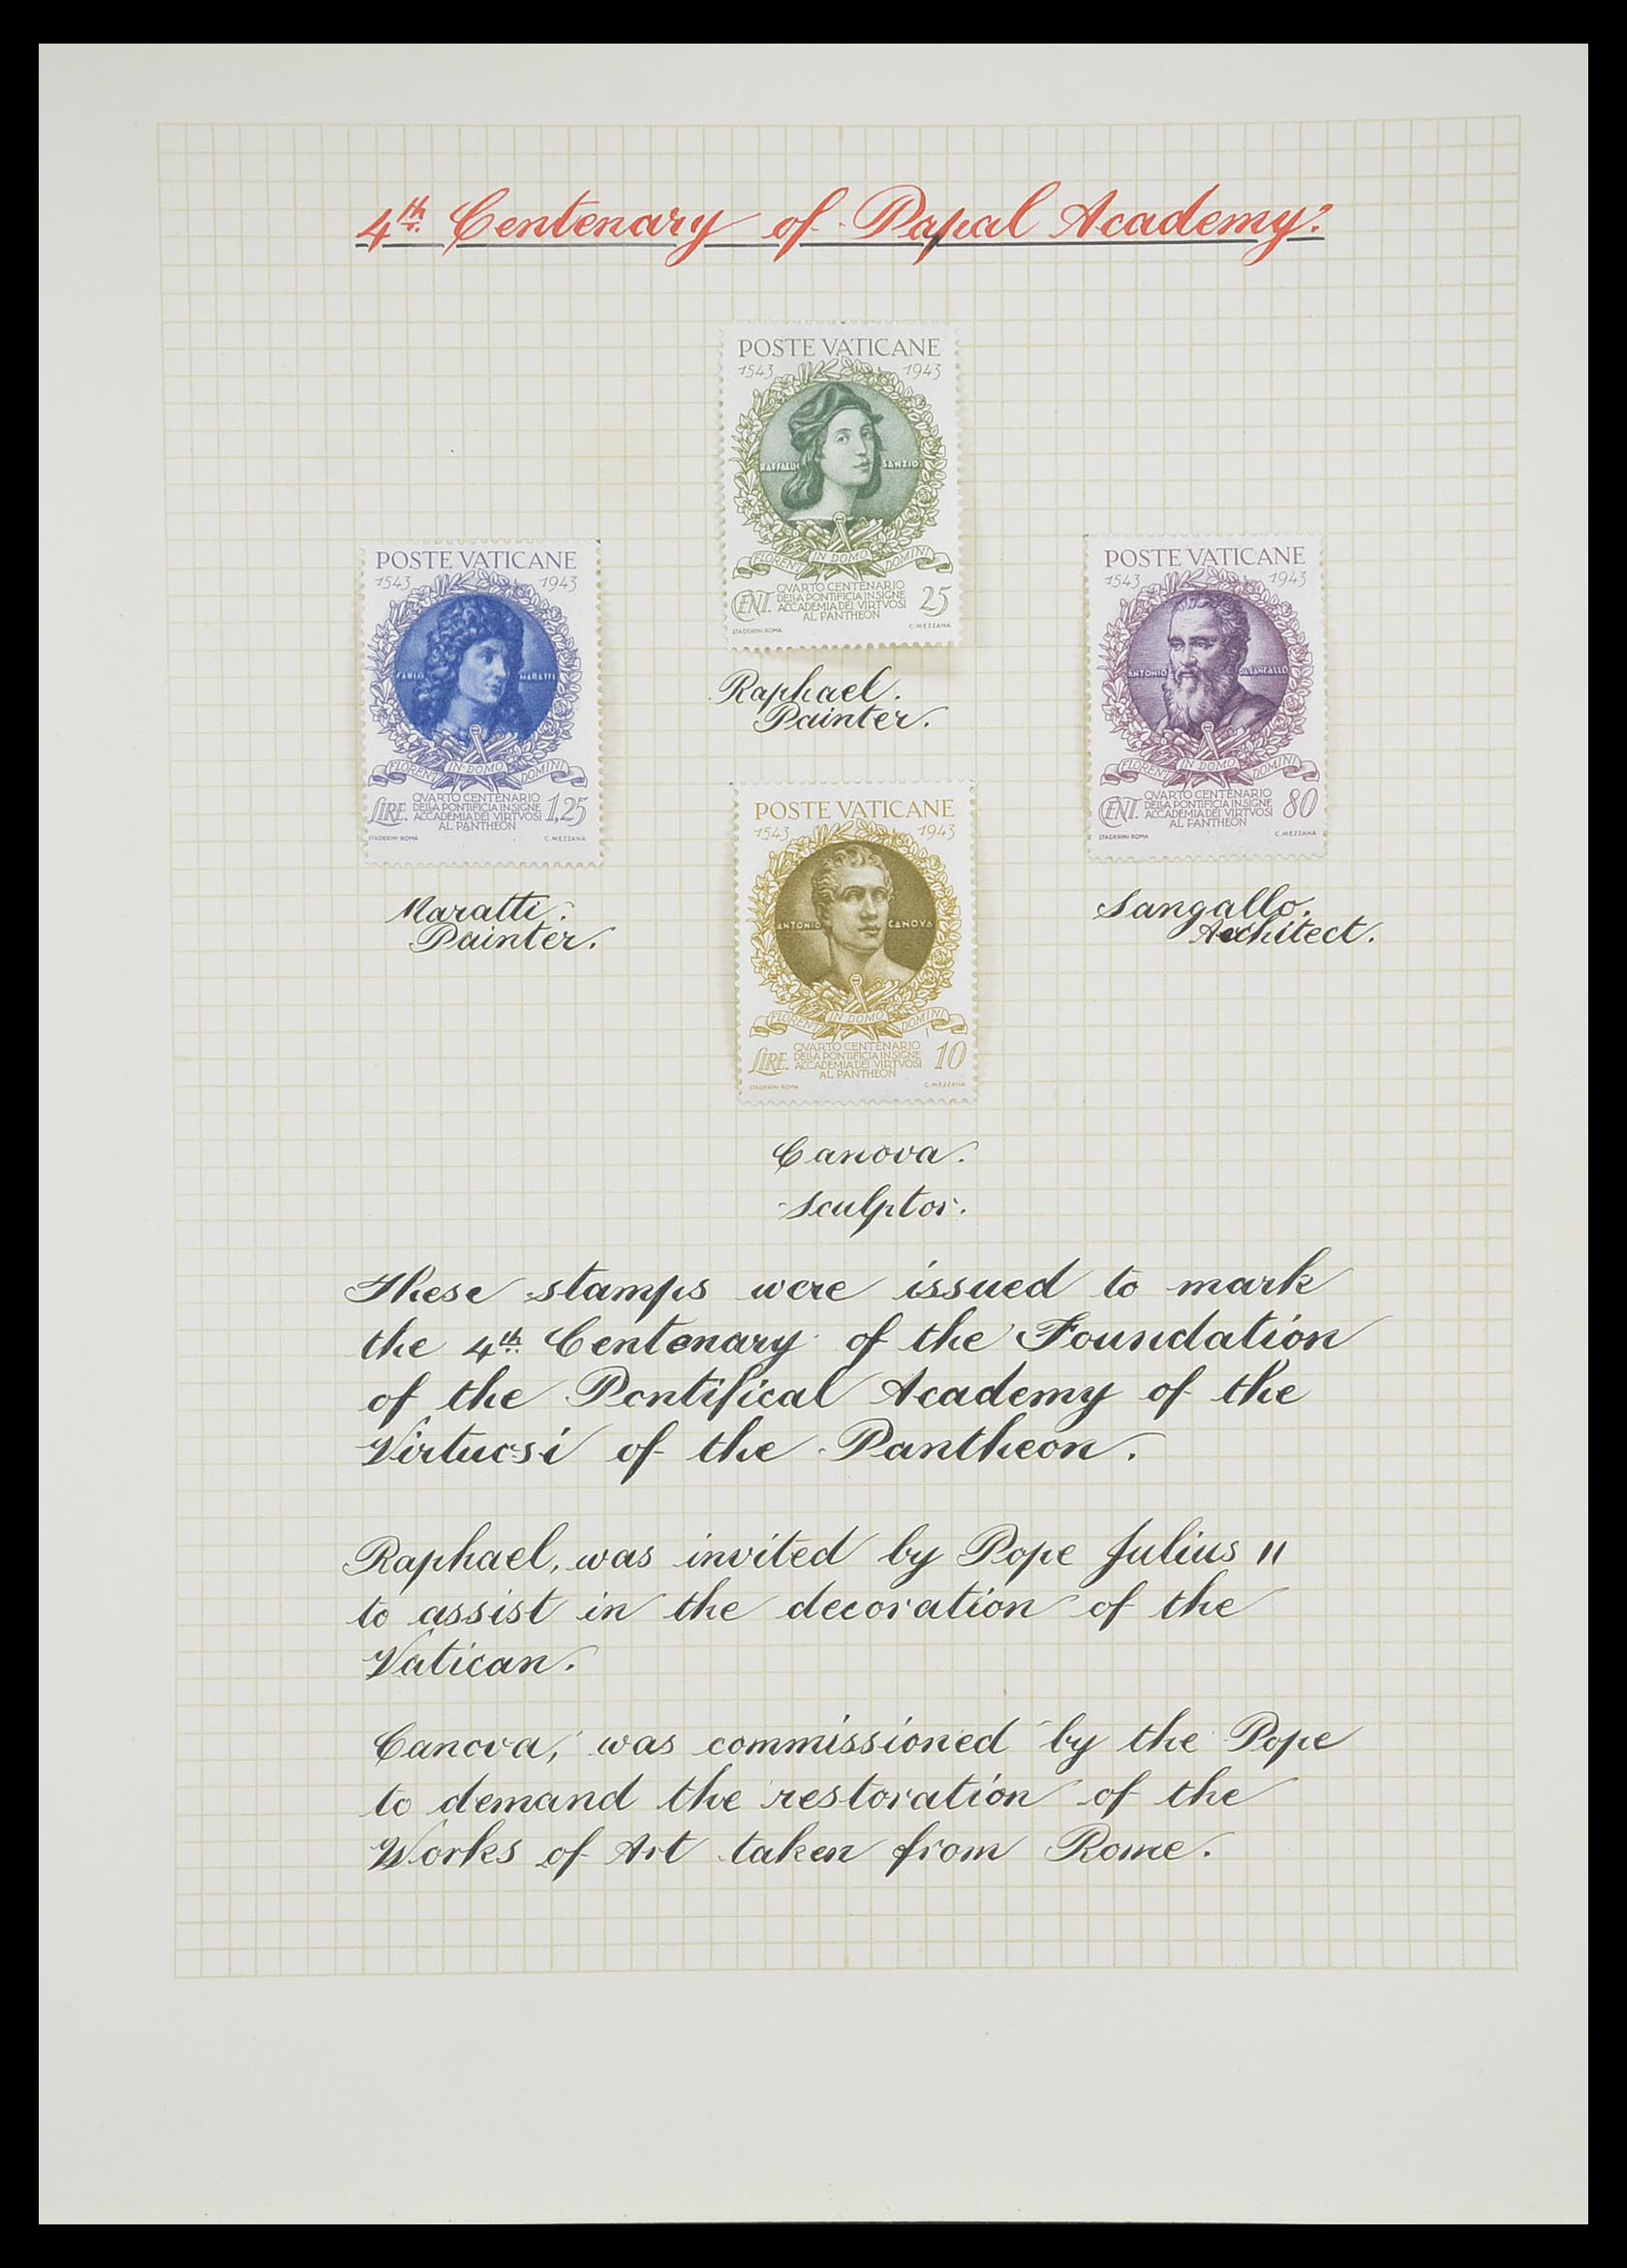 4th Centenary of Papal Academy.
POSTE VATICANE
1543 1943
RAFFAELLO SANZIO
FLORENT IN DOMO DOMINI
CENT. QVARTO CENTENARIO 25
DELLA PONTIFICIA INSIGNE
ACCADEMIA DEI VIRTVOSI
AL PANTHEON
STADERINI ROMA C. MEZZANA
Raphael.
Painter.
POSTE VATICANE
1543 1943
CARLO MARATTI
FLORENT IN DOMO DOMINI
LIRE. QVARTO CENTENARIO 1,25
DELLA PONTIFICIA INSIGNE
ACCADEMIA DEI VIRTVOSI
AL PANTHEON
STADERINI ROMA C. MEZZANA
Maratti.
Painter.
POSTE VATICANE
1543 1943
ANTONIO DA SANGALLO
FLORENT IN DOMO DOMINI
CENT. QVARTO CENTENARIO 80
DELLA PONTIFICIA INSIGNE
ACCADEMIA DEI VIRTVOSI
AL PANTHEON
STADERINI ROMA C. MEZZANA
Sangallo.
Architect.
POSTE VATICANE
1543 1943
ANTONIO CANOVA
FLORENT IN DOMO DOMINI
LIRE. QVARTO CENTENARIO 10
DELLA PONTIFICIA INSIGNE
ACCADEMIA DEI VIRTVOSI
AL PANTHEON
STADERINI ROMA C. MEZZANA
Canova.
Sculptor.
These stamps were issued to mark
the 4th Centenary of the Foundation
of the Pontifical Academy of the
Virtuosi of the Pantheon.
Raphael, was invited by Pope Julius II
to assist in the decoration of the
Vatican.
Canova, was commissioned by the Pope
to demand the restoration of the
Works of Art taken from Rome.